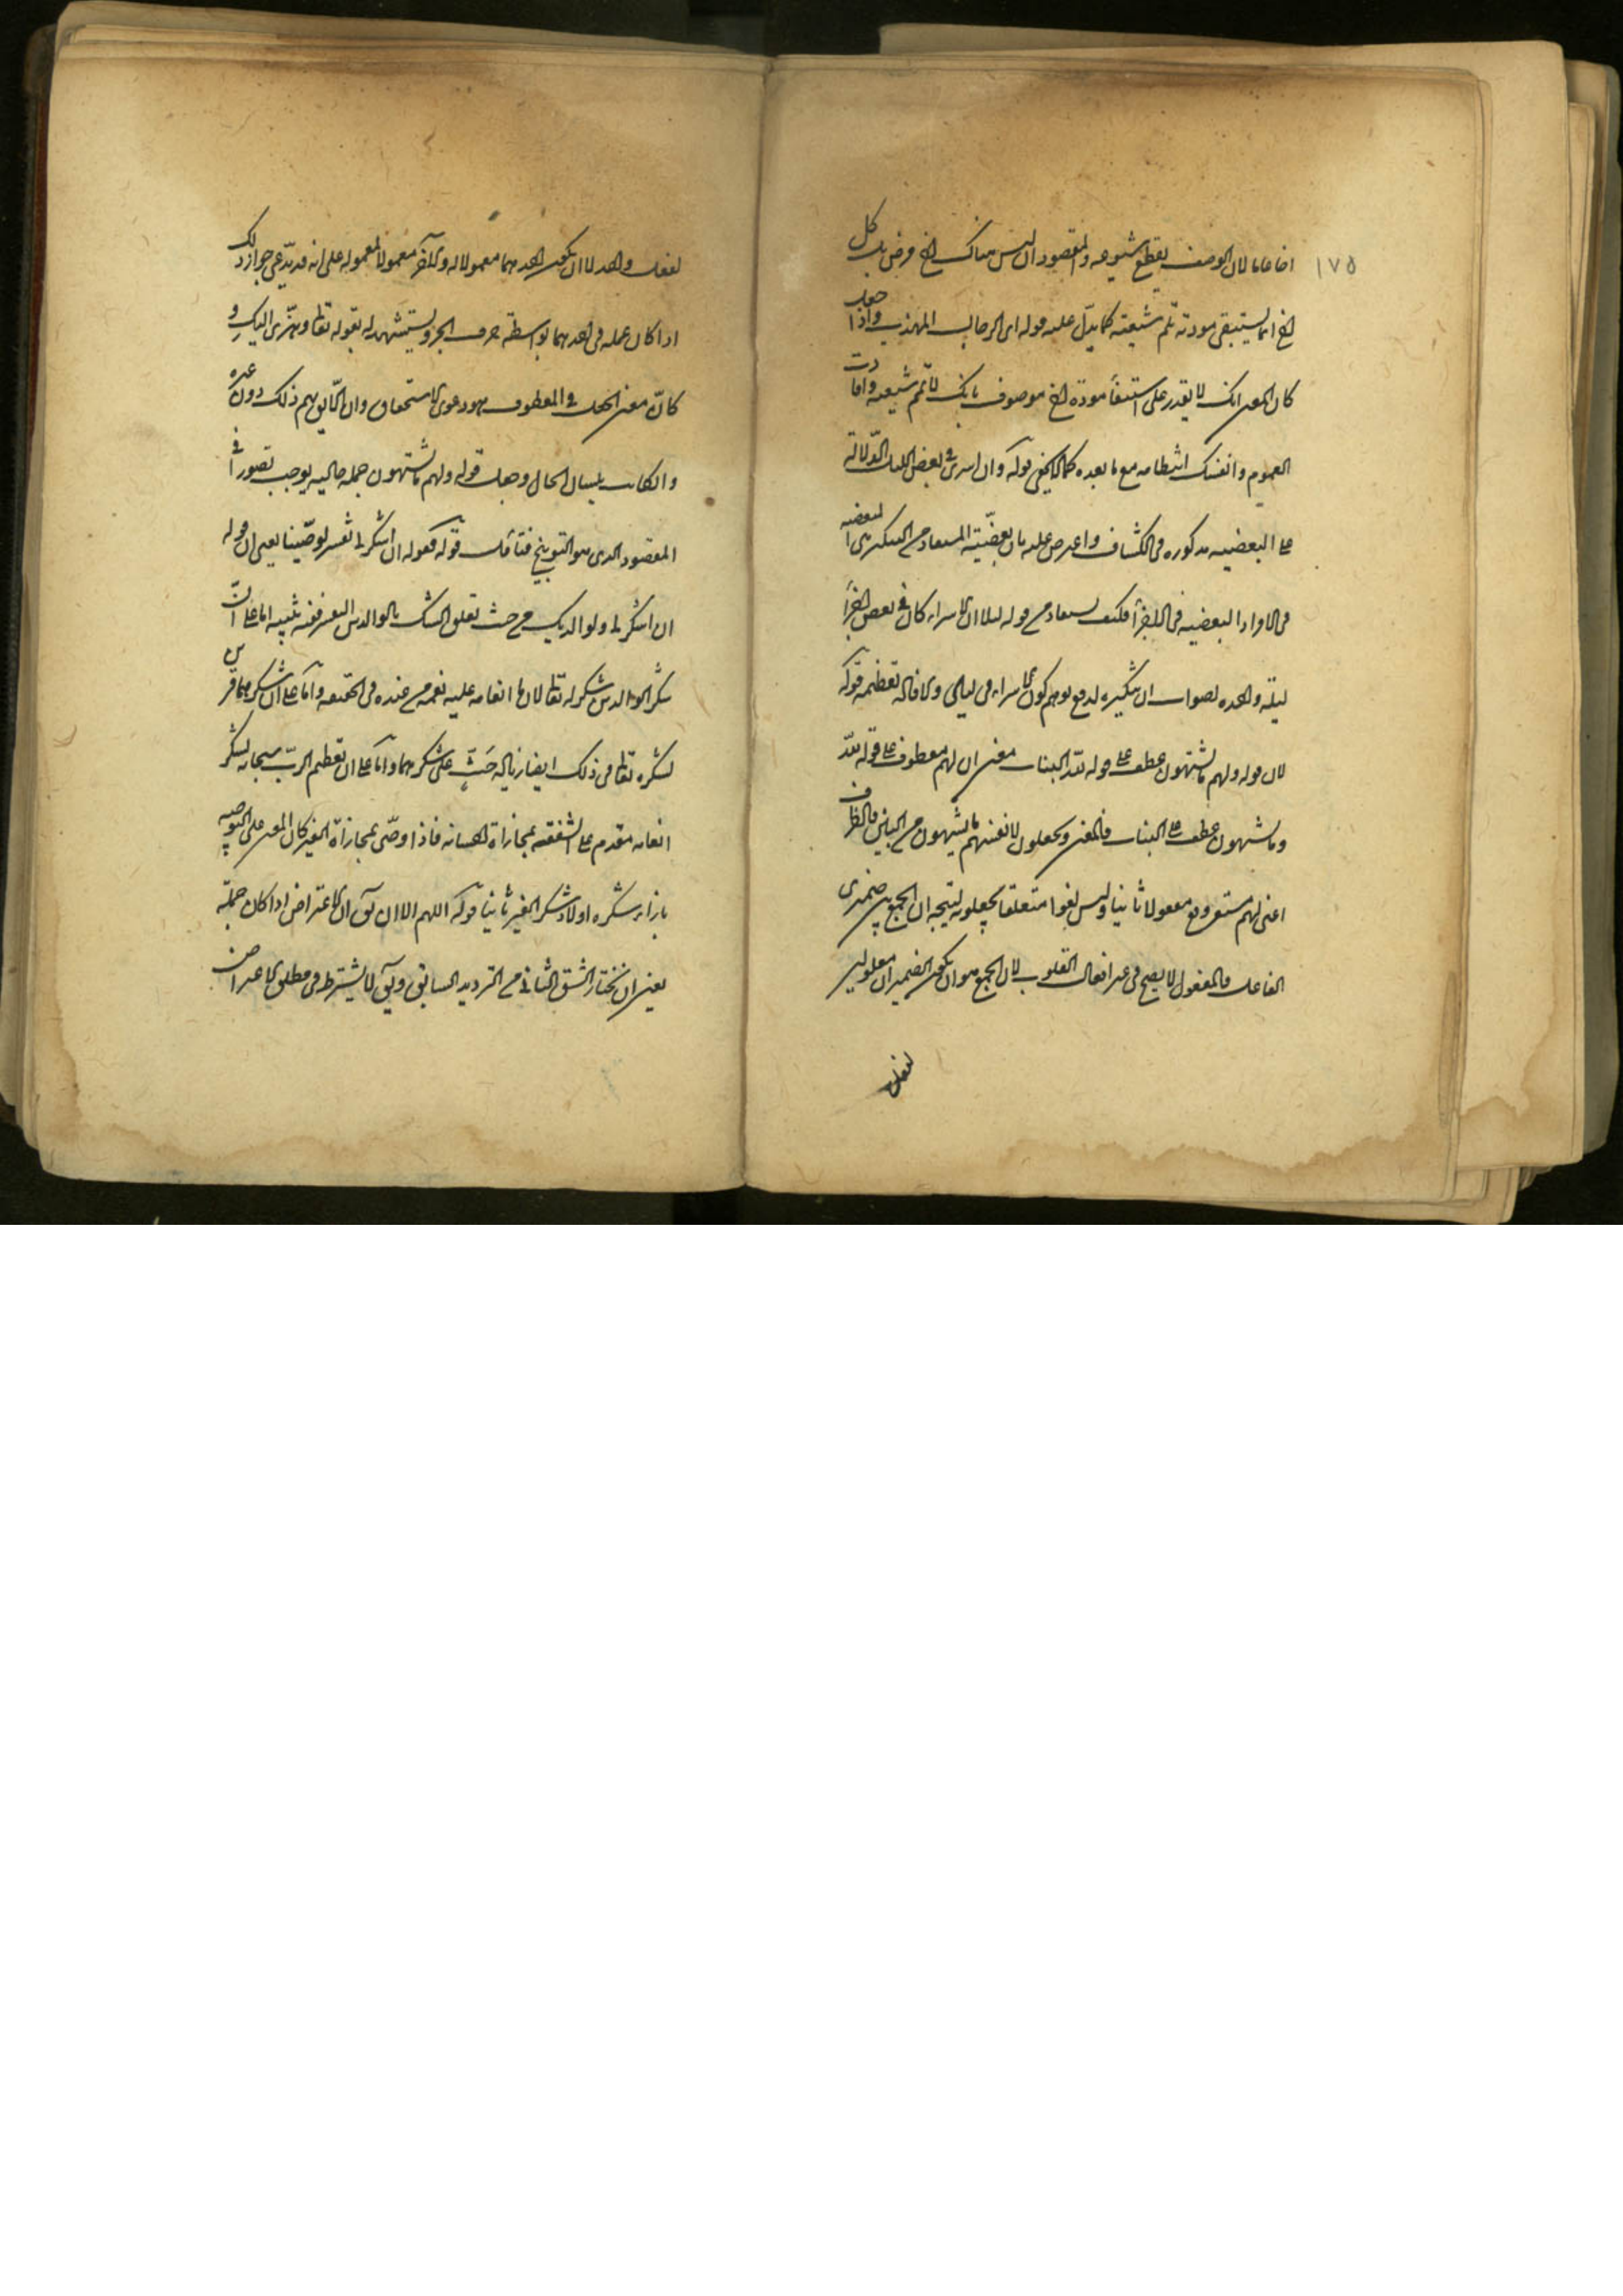 ١٧٥
اخا عاما لان الوصف يقطع شيوعه والمقصود ان ليس هناك اخ فرض بل كل
اخ انما يستبقى مودته تلم شعثه كما يدل عليه قوله اى الرجال المهذب واذا جعل
كان المعنى انك لا تقدر على استبقاء مودة اخ موصوف بانك لا تلم شعثه وافادت
العموم وانفك انتظامه مع ما بعده كما لا يخفى قوله وان اسرى فى بعض الليل الدلالة
على البعضيه مذكوره فى الكشاف واعترض عليه بان البعضية المستفاد من التنكير هى البعضيه
فى الافراد لا البعضيه فى الاجزاء فكيف يستفاد من قوله ليلا ان الاسراء كان فى بعض اجزاء
ليلة واحده لصواب ان تنكيره لدفع توهم كون الاسراء فى ليالى ولافادة تعظيمه قوله
لان قوله ولهم ما يشتهون عطف على قوله لله البنات معنى ان لهم معطوف على قوله لله
وما يشتهون عطف على البنات والمعنى ويجعلون لانفسهم ما يشتهون من البنين والظرف
اعنى لهم مستقر وقع مفعولا ثانيا وليس لغوا متعلقا بيجعلون ليتجه ان الجمع بين ضميرى
الفاعل والمفعول لا يصح فى غير افعال القلوب لان الجمع هو ان يكون الضميران معمولين
لفعل
لفعل واحد لا ان يكون احدهما معمولا له والآخر معمولا لمعموله على انه قد يدعى جواز ذلك
اذا كان عمله فى احدهما بواسطة حرف الجر ويستشهد له بقوله تعالى وهزى اليك و
كان معنى الجعل فى المعطوف هو دعوى الاستحقاق وان اللايق بهم ذلك دون غيره
وان كان بلسان الحال وجعل قوله ولهم ما يشتهون جملة حاليه يوجب قصورا فى
المقصود الذى هو التوبيخ فتأمل قوله كقوله ان اشكر لى تفسير لوصينا يعنى ان قوله
ان اشكر لى ولوالديك من حيث تعلق الشكر بالوالدين التفسير ففيه تنبيه اما على ان
شكر الوالدين شكر له تعالى لان انعامه عليه نعم من عنده فى الحقيقه واما على ان شكرهما قرين
لشكره تعالى فى ذلك ايضا زيادة حث على شكرهما واما على ان تعظيم الرب سبحانه لشكر
انعامه مقدم على الشفقة بمجازاة احسانه فاذا وصى بمجازاة الغير كان المعنى على التوصيه
بازاء شكره اولا وشكر الغير ثانيا قوله اللهم الا ان يق ان الاعتراض اذا كان جملة
يعنى ان نختار الشق الثانى من الترديد السابق ويق لا يشترط فى مطلق الاعتراض